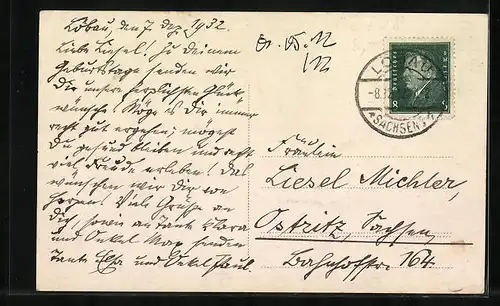 Löbau, den 7. Dez. 1932.
Liebe Liesel! Zu Deinem
Geburtstage senden wir
Dir unsere herzlichsten Glück-
wünsche! Möge es Dir immer
recht gut ergehen; mögest
Du gesund bleiben und recht
viel Freude erleben! Das
wünschen wir Dir von
Herzen! Viele Grüße an
Dich, sowie an Tante Klara
und Onkel Max senden
Tante und Onkel Paul.
LÖBAU
-8.12
(SACHSEN)
Deutsches Reich
8 8
Fräulein
Liesel Michler,
Ostritz, Sachsen
Bahnhofstr. 164